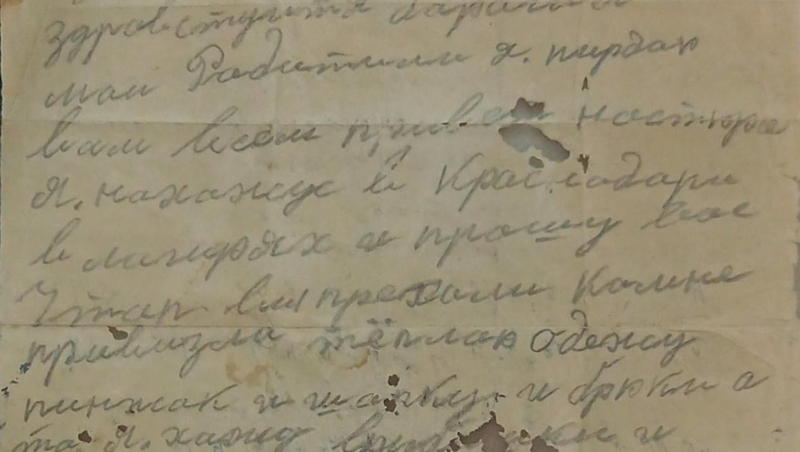 здравствуйтя дарагия
маи Радитили я. пирдаю
вам всем привет
я. нахажус в Краснодари
в лагирях и прошу вас
Чтап вы прехали камне
привизли тёплаю одежу
пинжак и шапку и брюки а
та я. хажу и